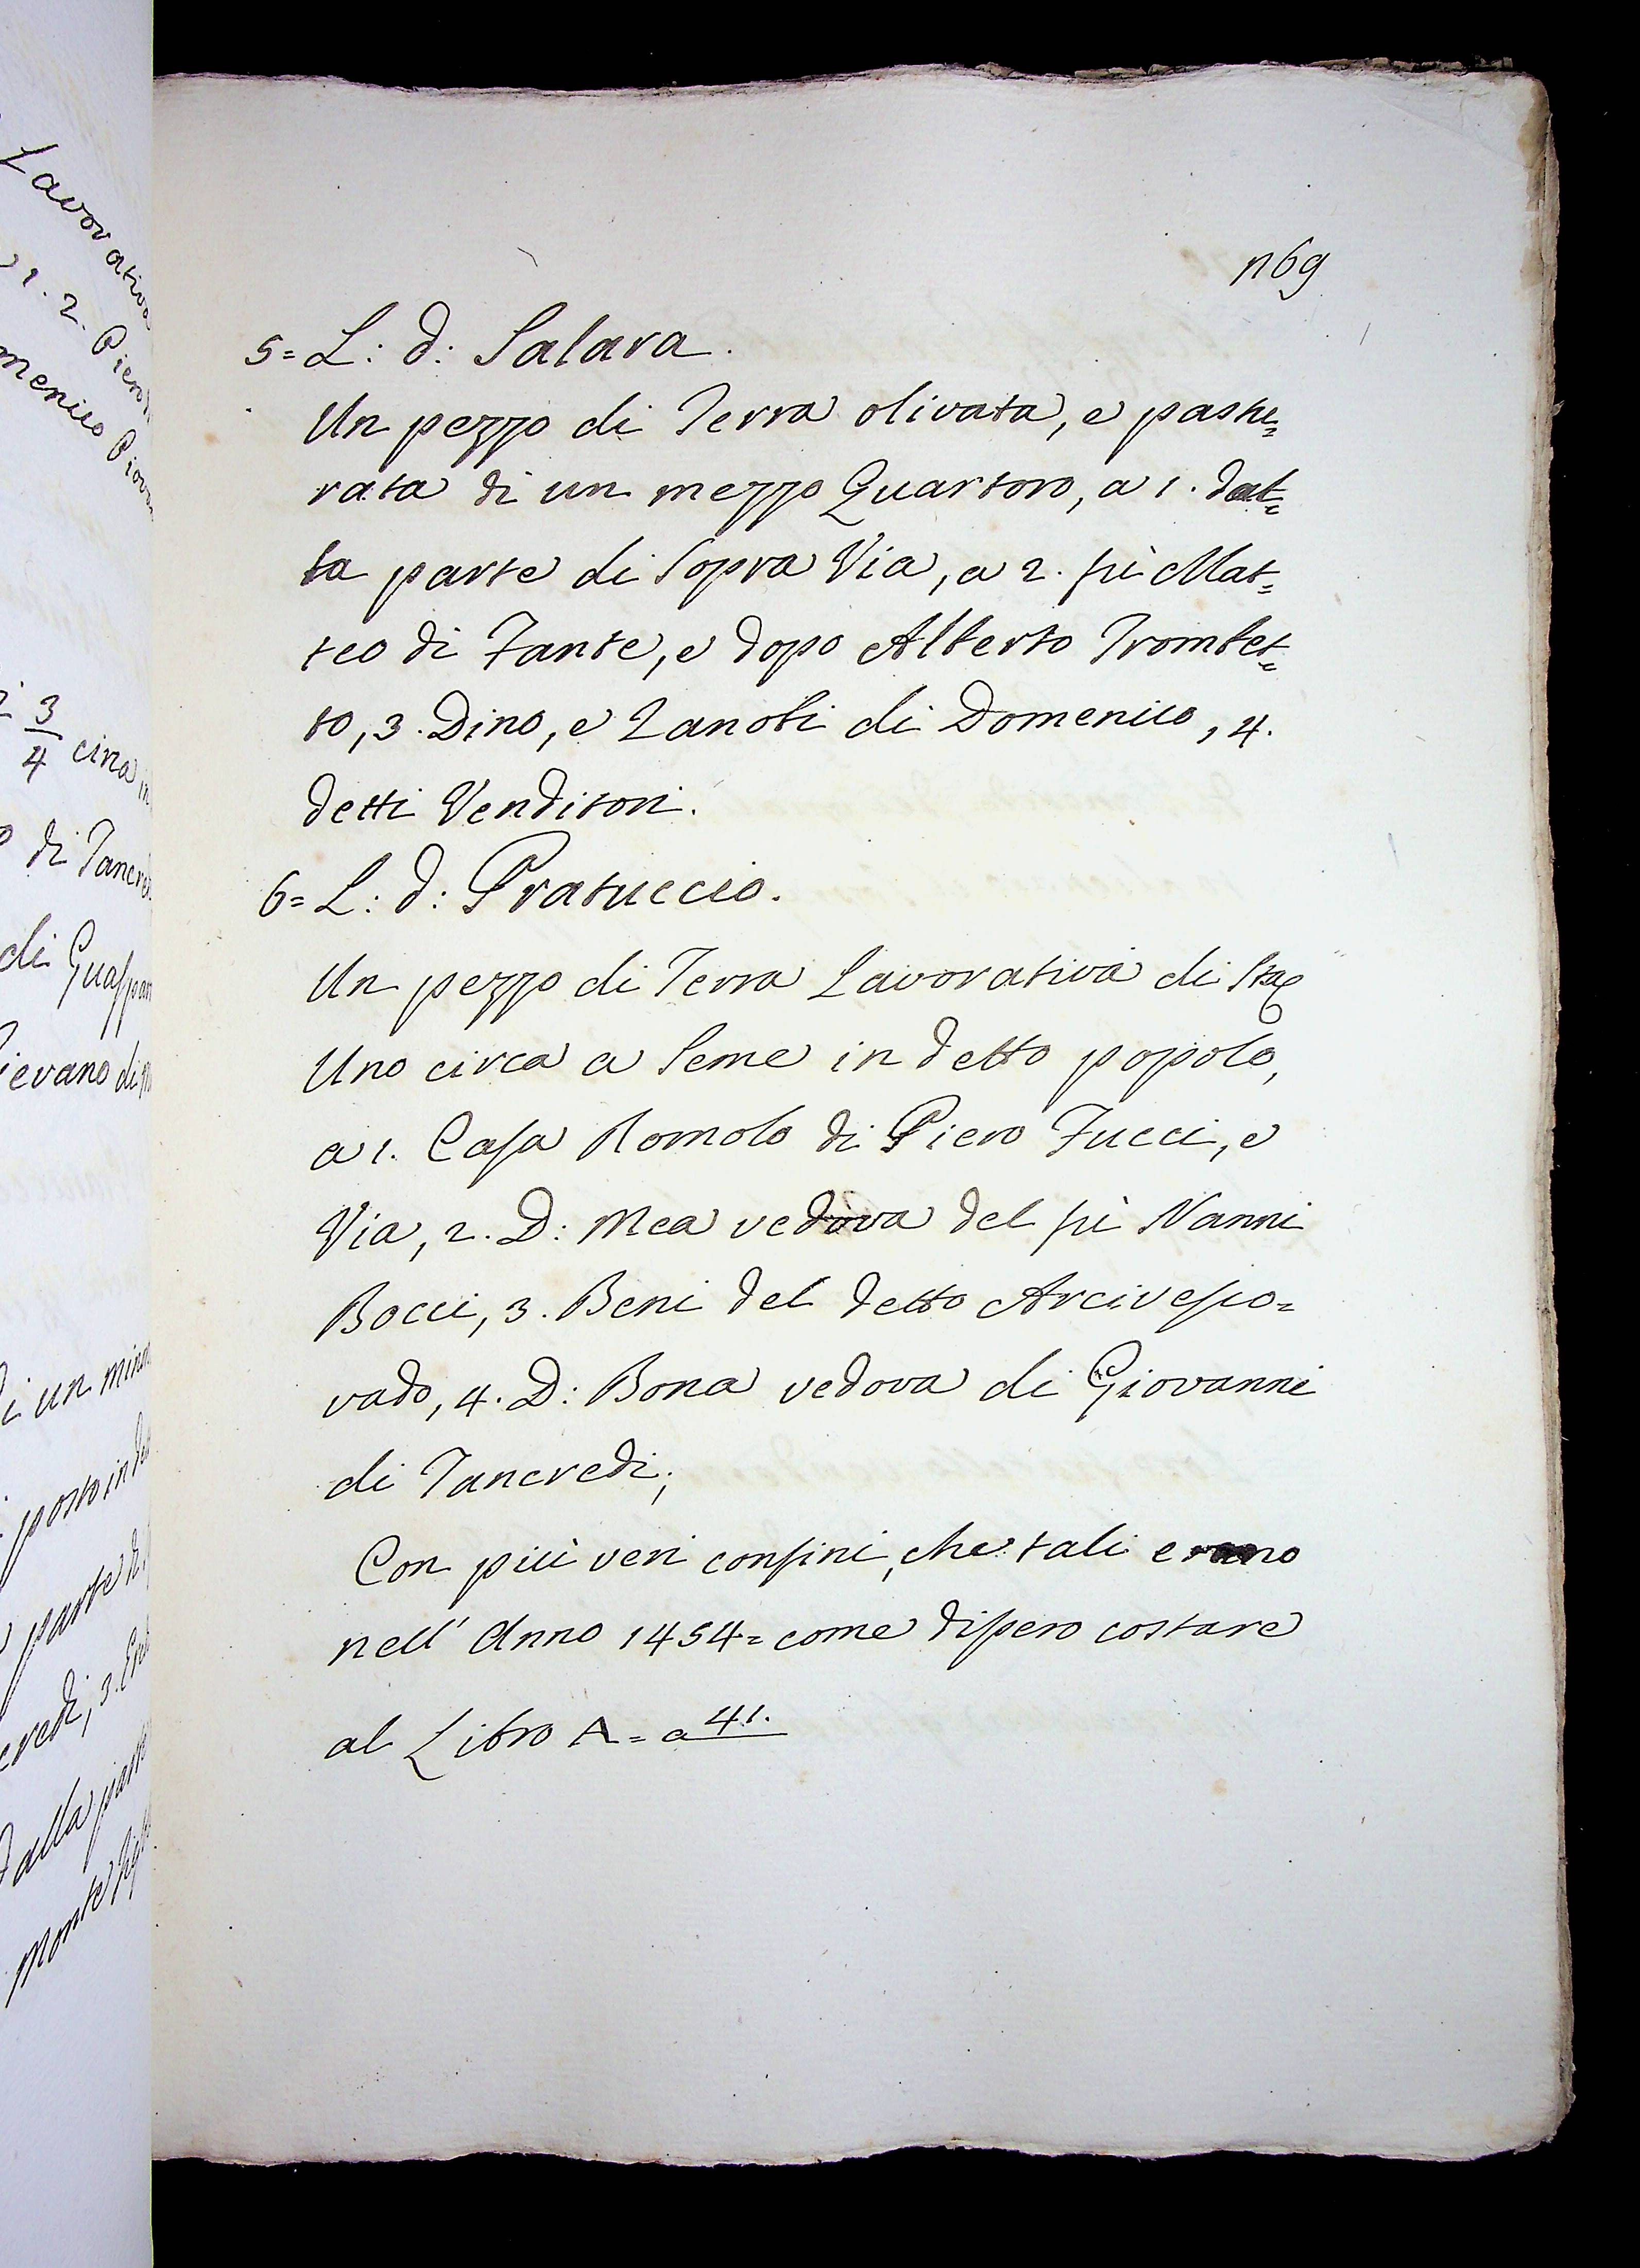 Lavorativa
1. 2. Piero
menico Piovan
3/4 circa in
di Tancre
di Guaspar
ievano di
i un mino
posto in de
parte di
credi, 3.
dalla parte
Monte
n69
5= L: d: Salara.
Un pezzo di Terra olivata, e pastu=
rata di un mezzo Quartoro, a 1. dal=
la parte di sopra Via, a 2. fù Mat=
teo di Fante, e dopo Alberto Trombet=
to, 3. Dino, e Zanobi di Domenico, 4.
detti Venditori.
6= L: d: Pratuccio.
Un pezzo di Terra Lavorativa di Sta
Uno circa a Seme in detto popolo,
a 1. Casa Romolo di Piero Fucci, e
Via, 2. D: Mea vedova del fù Nanni
Bocci, 3. Beni del detto Arcivesco=
vado, 4. D: Bona vedova di Giovanni
di Tancredi;
Con più veri confini, che tali erano
nell' Anno 1454= come dissero costare
al Libro A= a 41.